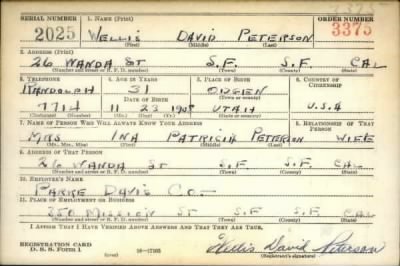 SERIAL NUMBER 1. NAME (Print) ORDER NUMBER
2025 WELLIS DAVID PETERSON 3375
(First) (Middle) (Last)
2. ADDRESS (Print)
26 WANDA ST S.F. S.F. CAL
(Number and street or R. F. D. number) (Town) (County) (State)
3. TELEPHONE 4. AGE IN YEARS 5. PLACE OF BIRTH 6. COUNTRY OF CITIZENSHIP
RANDOLPH 31 OGDEN
DATE OF BIRTH (Town or county)
7714 11 23 1908 UTAH U.S.A
(Exchange) (Number) (Mo.) (Day) (Yr.) (State or country)
7. NAME OF PERSON WHO WILL ALWAYS KNOW YOUR ADDRESS 8. RELATIONSHIP OF THAT PERSON
MRS INA PATRICIA PETERSON WIFE
(Mr., Mrs., Miss) (First) (Middle) (Last)
9. ADDRESS OF THAT PERSON
26 WANDA ST S.F. S.F. CAL
(Number and street or R. F. D. number) (Town) (County) (State)
10. EMPLOYER'S NAME
PARKE DAVIS CO.
11. PLACE OF EMPLOYMENT OR BUSINESS
MISSION ST S.F. S.F. CAL
(Number and street or R. F. D. number) (Town) (County) (State)
I AFFIRM THAT I HAVE VERIFIED ABOVE ANSWERS AND THAT THEY ARE TRUE.
REGISTRATION CARD
D. S. S. FORM 1 (over) Wellis David Peterson
(Registrant's signature)